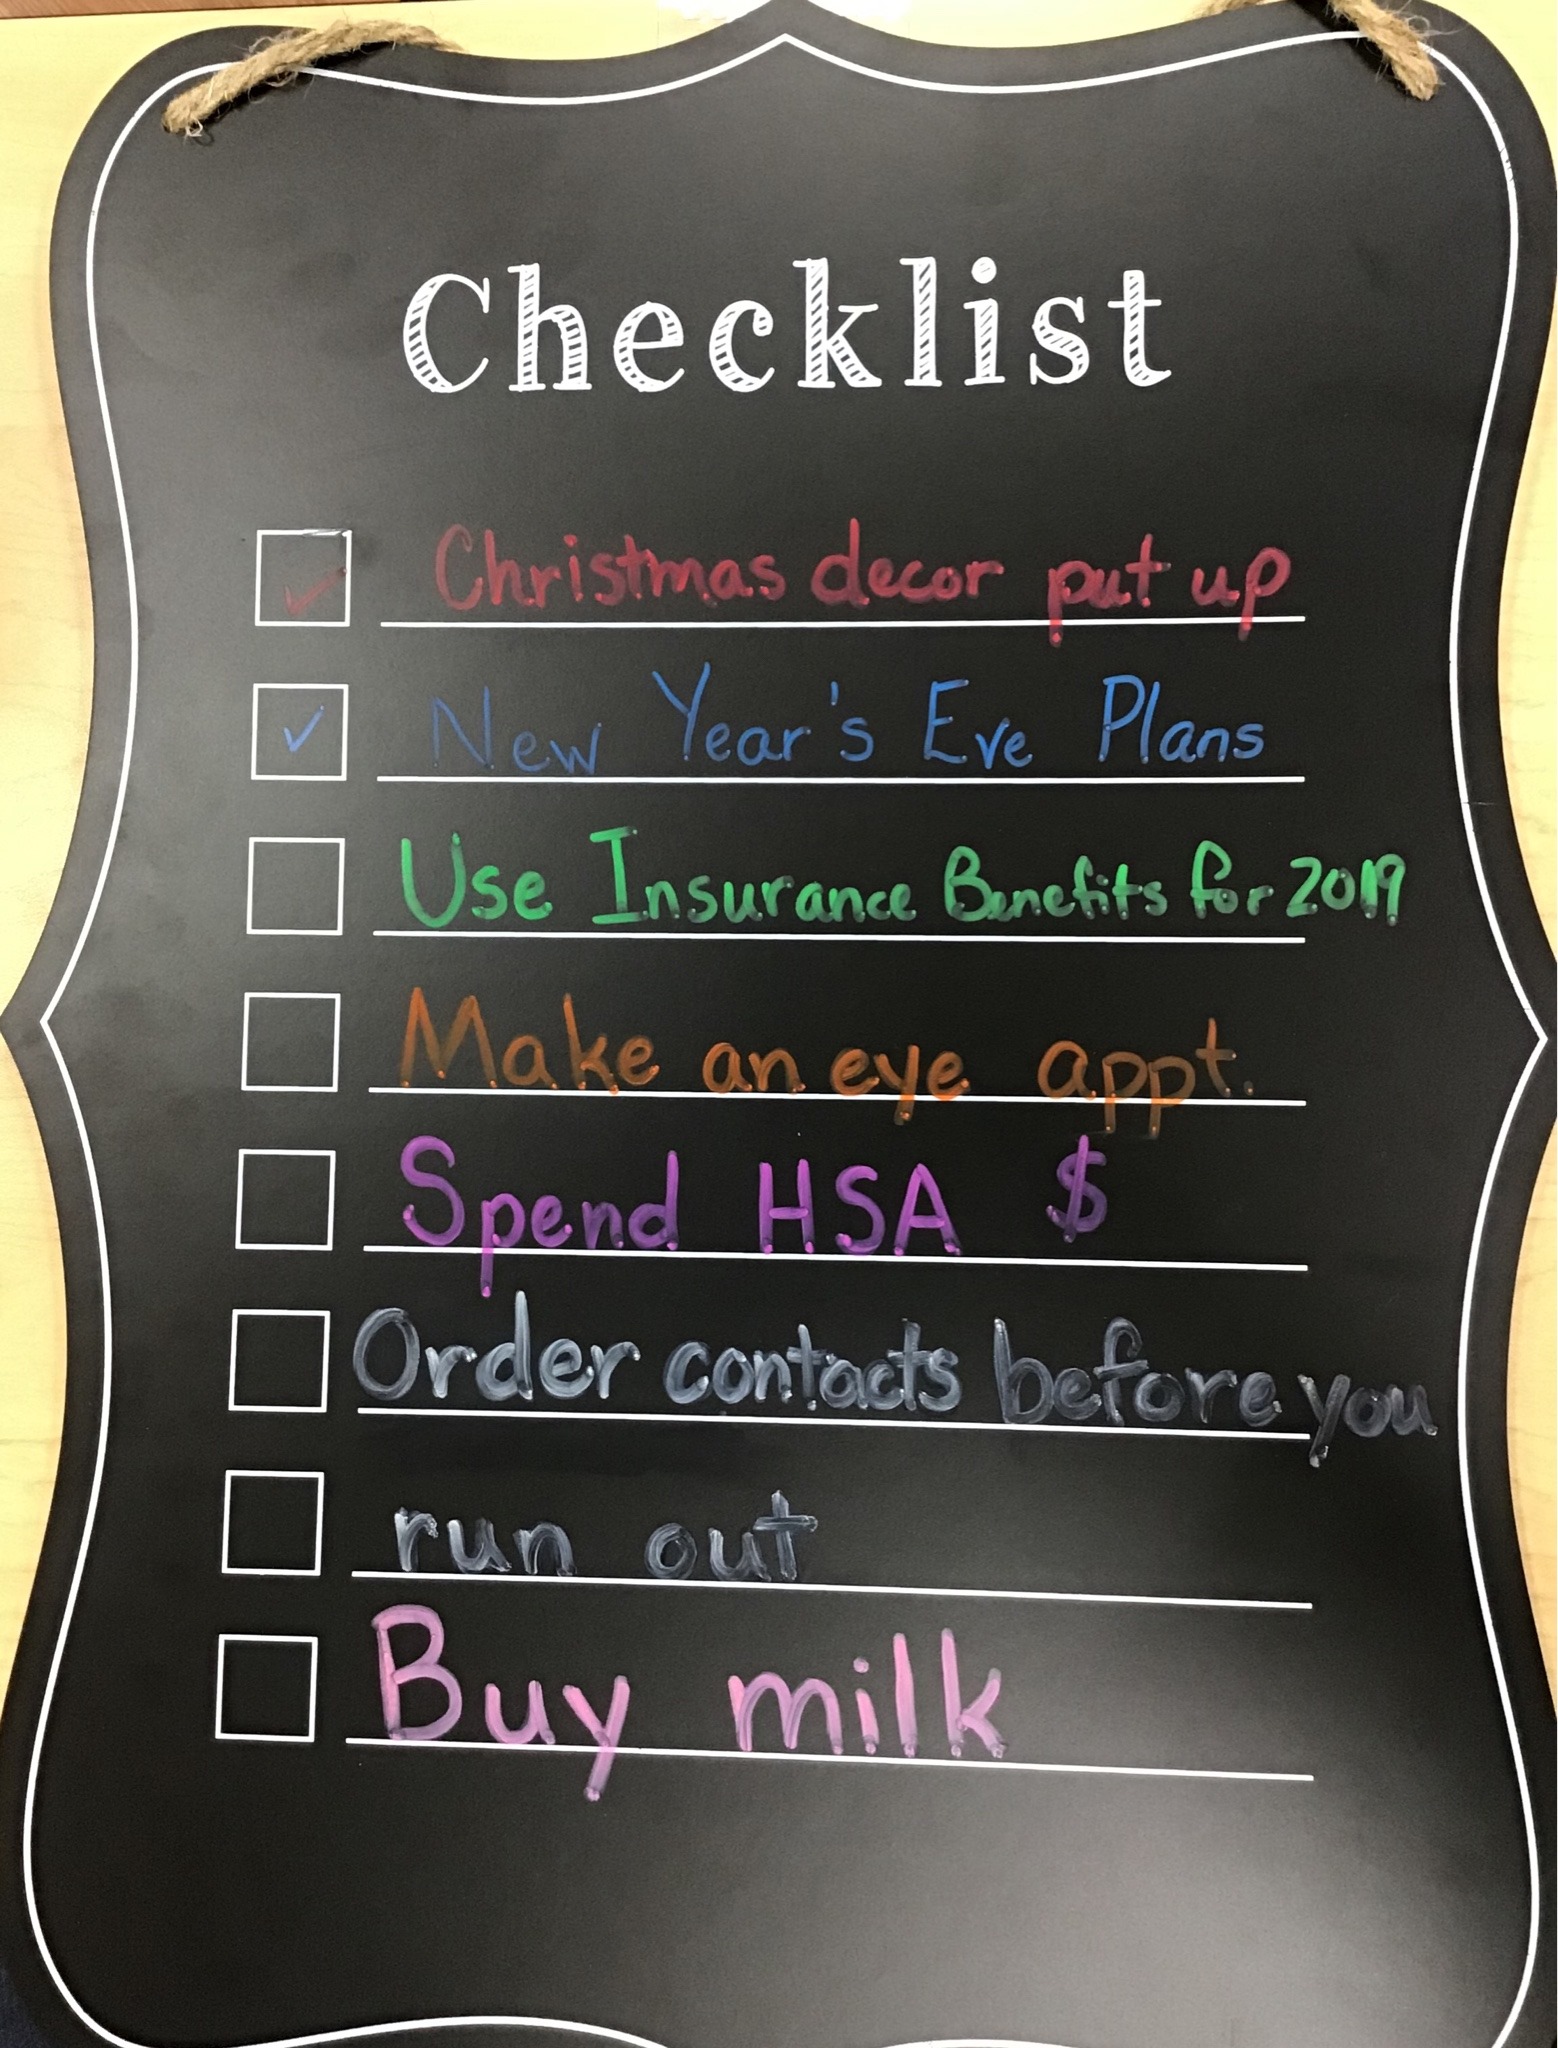 Checklist
Christmas decor put up
New Year's Eve Plans
Use Insurance Benefits for 2019
Make an eye appt.
Spend HSA $
Order contacts before you
run out
Buy milk